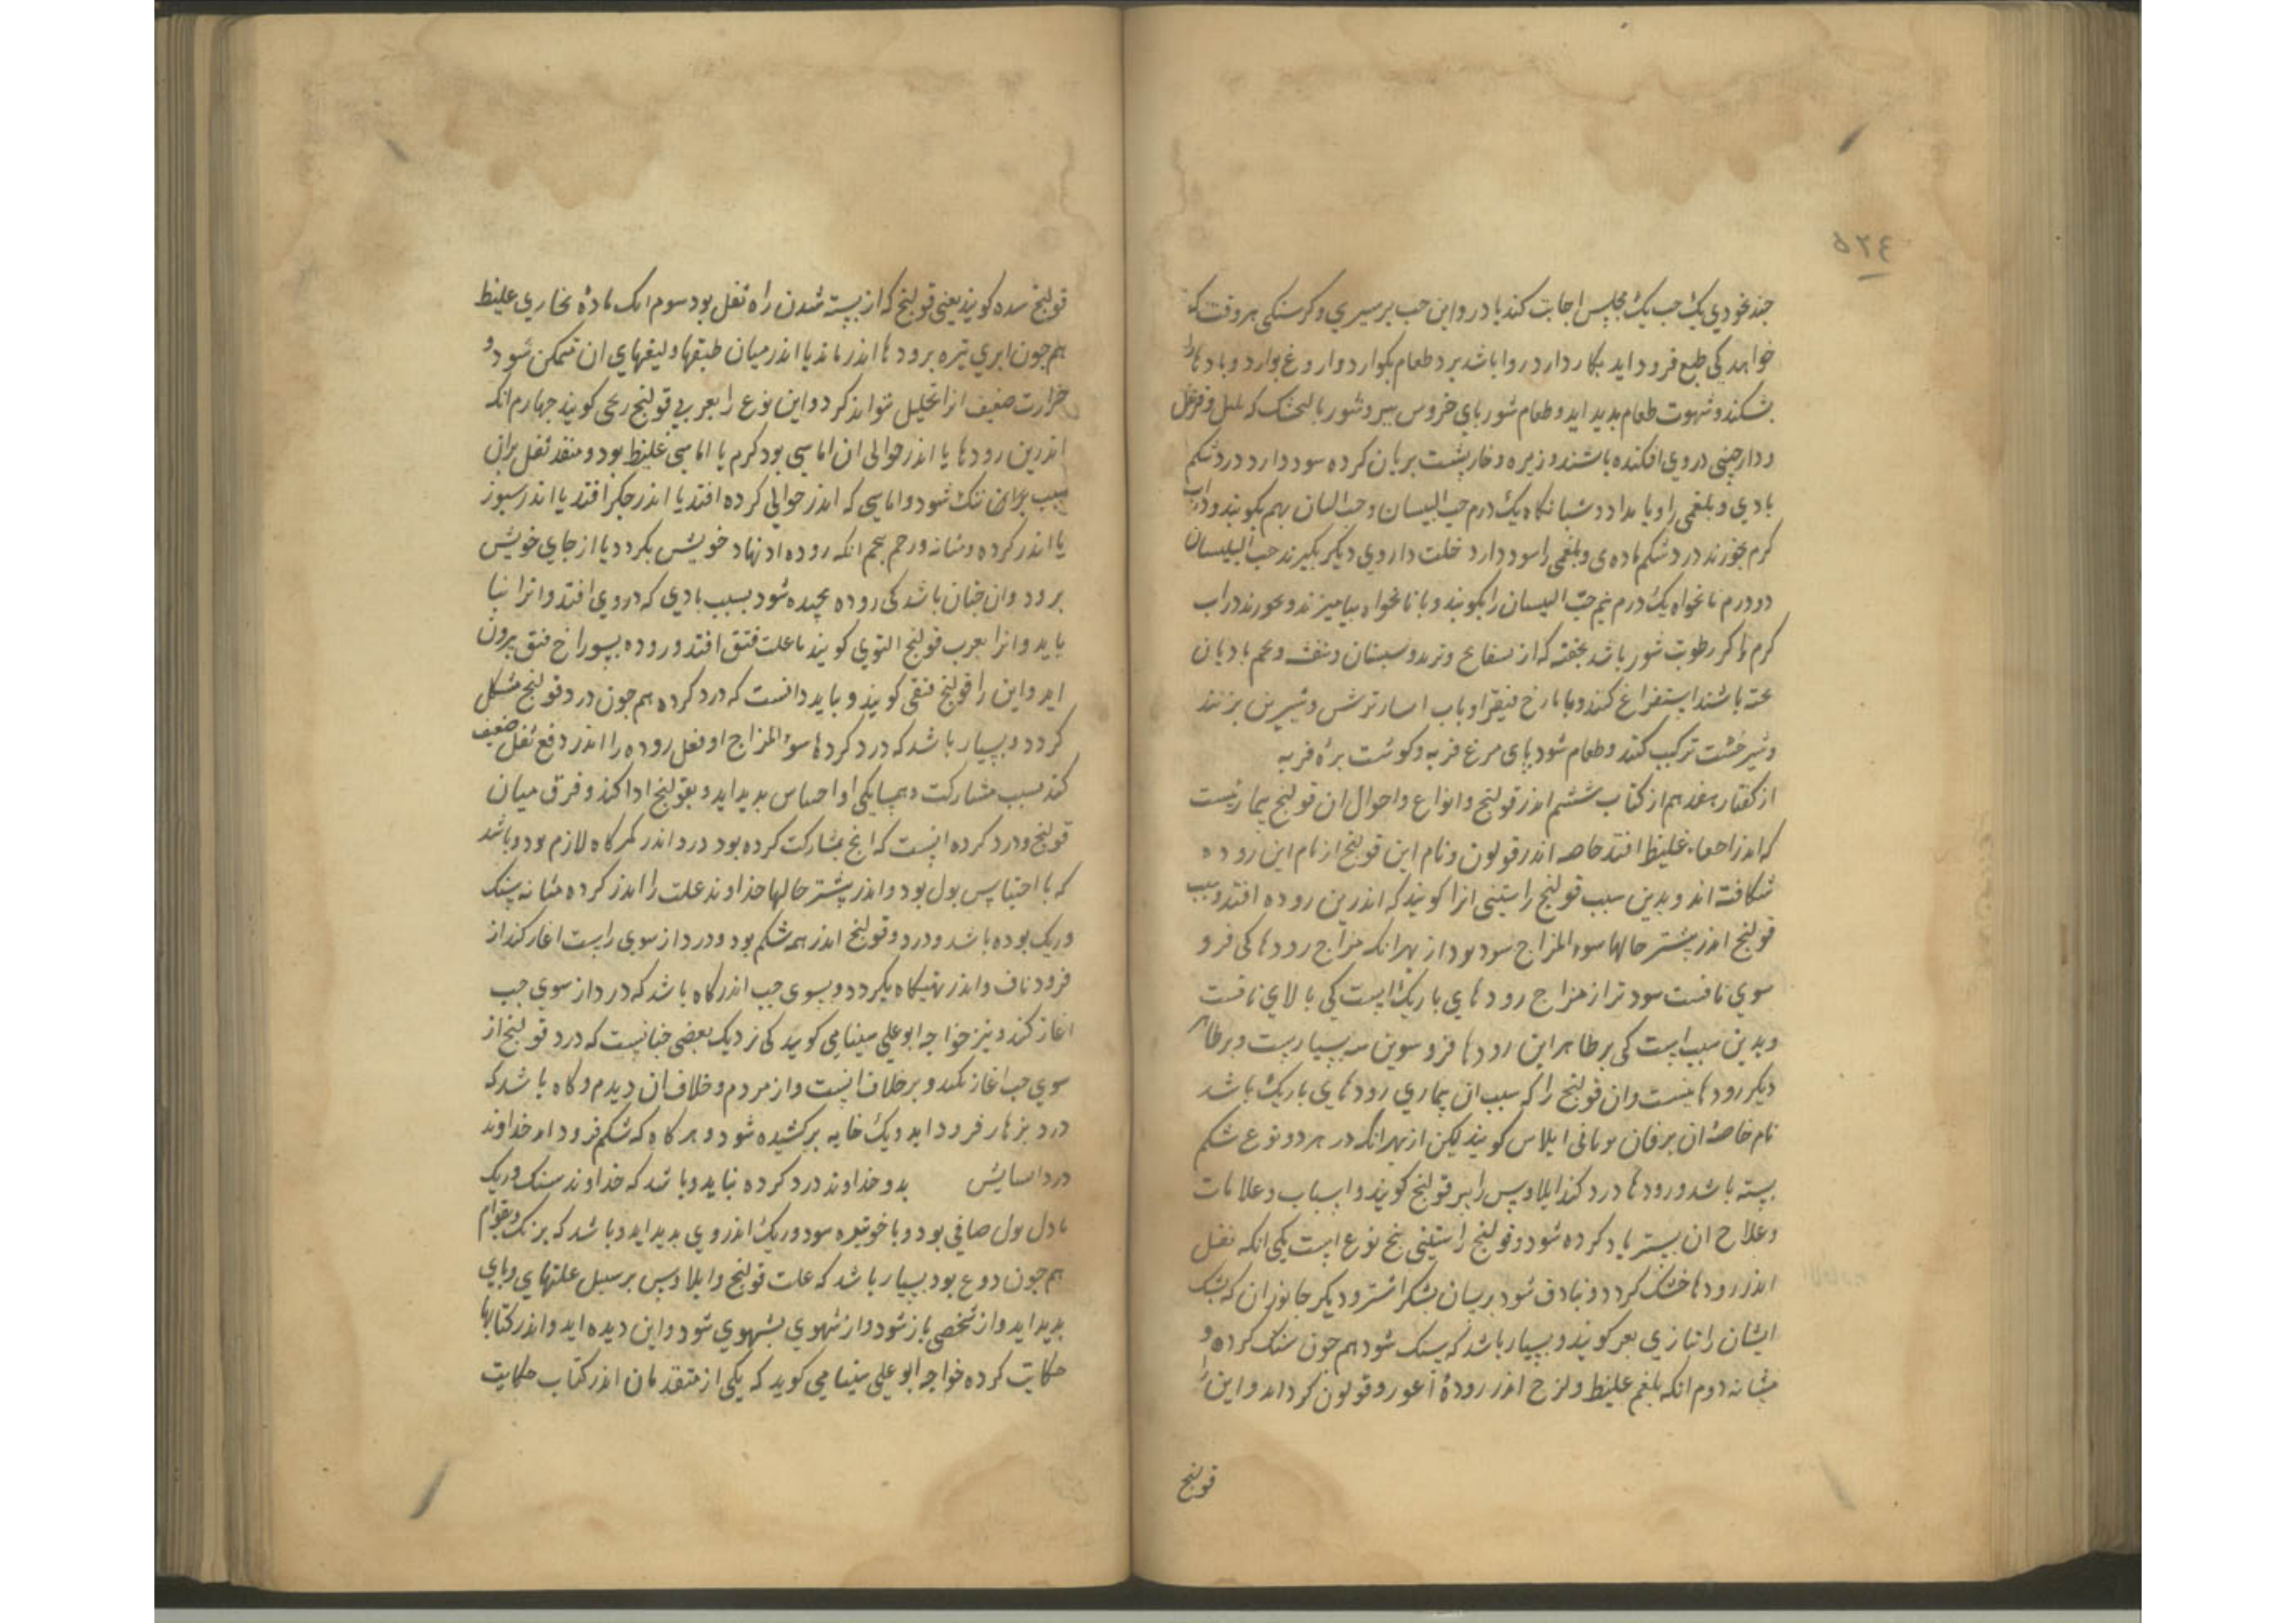 ۵۲٤
جند نخودی یک حب یک مجلس اجابت کند با درو این حب بر سیری و کرسنکی هر وقت که
خواهد کی طبع فرود اید بکار دارد روا باشد برد طعام بکوارد و اروغ بوارد و بادها را
بشکند و شهوت طعام بدید اید و طعام شوربای خروس بیر و شوربا کنجشک که بلبل و قرنفل
و دارچینی دروی افکنده باشند و زیره و خارپشت بریان کرده سود دارد درد شکم
بادی و بلغمی را و بامداد و شبانکاه یک درم حب البلسان و حب البان بهم بکوبند و در اب
کرم بخورند درد شکم باده ی و بلغمی را سود دارد خلت داروی دیکر بکیرند حب البلسان
دو درم نانخواه یک درم نیم حب البلسان را بکوبند و با نانخواه بیامیزند و بخورند در اب
کرم و اکر رطوبت شور باشد بحقنه که از بسفایج و تربد و سبستان و بنفشه و تخم بادیان
بخته باشند استفراغ کنند و یا یارج فیقرا و باب انار ترش و شیرین بزنند
و شیرخشت ترکیب کنند و طعام شوربای مرغ فربه و کوشت بره فربه
از کفتار هفدهم از کتاب ششم اندر قولنج و انواع و احوال ان قولنج بیماریست
که اندر امعاء غلیظ افتد خاصه اندر قولون و نام این قولنج از نام این روده
شکافته اند و بدین سبب قولنج راستینی انرا کویند که اندرین روده افتد و سبب
قولنج اندر بیشتر حالها سوء المزاج سود بود از بهر انکه مزاج رودها کی فرو
سوی نافست سودتر از مزاج رودهای باریک است کی بالای نافست
و بدین سبب است کی بر ظاهر این رودها فرو سوین پیه بسیارست و بر ظاهر
دیکر رودها نیست و ان قولنج را که سبب ان بیماری رودهای باریک باشد
نام خاصهٔ ان بزفان یونانی ایلاس کویند لیکن از بهر انکه در هر دو نوع شکم
بسته باشد و رودها درد کند ایلاوس را نیز قولنج کویند و اسباب و علامات
و علاج ان بیشتر یاد کرده شود و قولنج راستینی بنج نوع است یکی انکه ثفل
اندر رودها خشک کردد و بنادق شود برسان بشک اشتر و دیکر جانوران که بشک
ایشان را بتازی بعر کویند و بسیار باشد که سنک شود هم جون سنک کرده و
مثانه دوم انکه بلغم غلیظ و لزج اندر رودهٔ اعور و قولون کرد اید و این را
قولنج
قولنج سده کویند یعنی قولنج که از بسته شدن راه ثفل بود سوم انک مادهٔ بخاری غلیظ
هم جون ابری تیره برودها اندر ماند یا اندر میان طبقها و لیفهای ان متمکن شود و
حرارت ضعیف انرا تحلیل نتواند کرد و این نوع را بعربی قولنج ریحی کویند جهارم انکه
اندرین رودها یا اندر حوالی ان اماسی بود کرم یا اماسی غلیظ بود و منفذ ثفل بران
سبب بران تنک شود و اماسی که اندر حوالی کرده افتد یا اندر جکر افتد یا اندر سبرز
یا اندر کرده و مثانه و رحم بنجم انکه روده از نهاد خویش بکردد یا از جای خویش
برود وان جنان باشد کی روده بیجیده شود بسبب بادی که دروی افتد و انرا نیا
یابد و انرا بعرب قولنج التوی کویند یا علت فتق افتد و روده بسوراخ فتق بیرون
اید و این را قولنج فتقی کویند و باید دانست که درد کرده هم جون درد قولنج مشکل
کردد و بسیار باشد که درد کردها سوء المزاج او فعل روده را اندر دفع ثفل ضعیف
کند بسبب مشارکت و همسایکی او احساس بدید اید و بقولنج ادا کند و فرق میان
قولنج و درد کرده انست که انج بمشارکت کرده بود درد اندر کمرکاه لازم بود و باشد
که با احتباس بول بود و اندر بیشتر حالها خداوند علت را اندر کرده مثانه سنک
و ریک بوده باشد و درد قولنج اندر همه شکم بود و درد از سوی راست اغاز کند از
فرود ناف و اندر تهیکاه بکردد و بسوی جب اندر کاه باشد که درد از سوی جب
اغاز کند و نیز خواجه ابو علی سینا می کوید کی نزدیک بعضی جنانست که درد قولنج از
سوی جب اغاز نکند و بر خلاف انست و از مردم و خلاف ان دیدم و کاه باشد که
درد بزهار فرود اید و یک خایه برکشیده شود و هر کاه که شکم فرود اید خداوند
درد اسایش بدو خداوند درد کرده نیاید و باشد که خداوند سنک و ریک
بادل بول صافی بود و با خونبوه سود و ریک اندروی بدید اید و باشد که برنک و بقوام
هم جون دوغ بود بسیار باشد که علت قولنج و ایلاوس بر سبیل علتهای وبای
بدید اید و از شخصی باز شود و از شهری بشهری شود و این دیده اید و اندر کتابها
حکایت کرده خواجه ابو علی سینا می کوید که یکی از متقدمان اندر کتاب حکایت